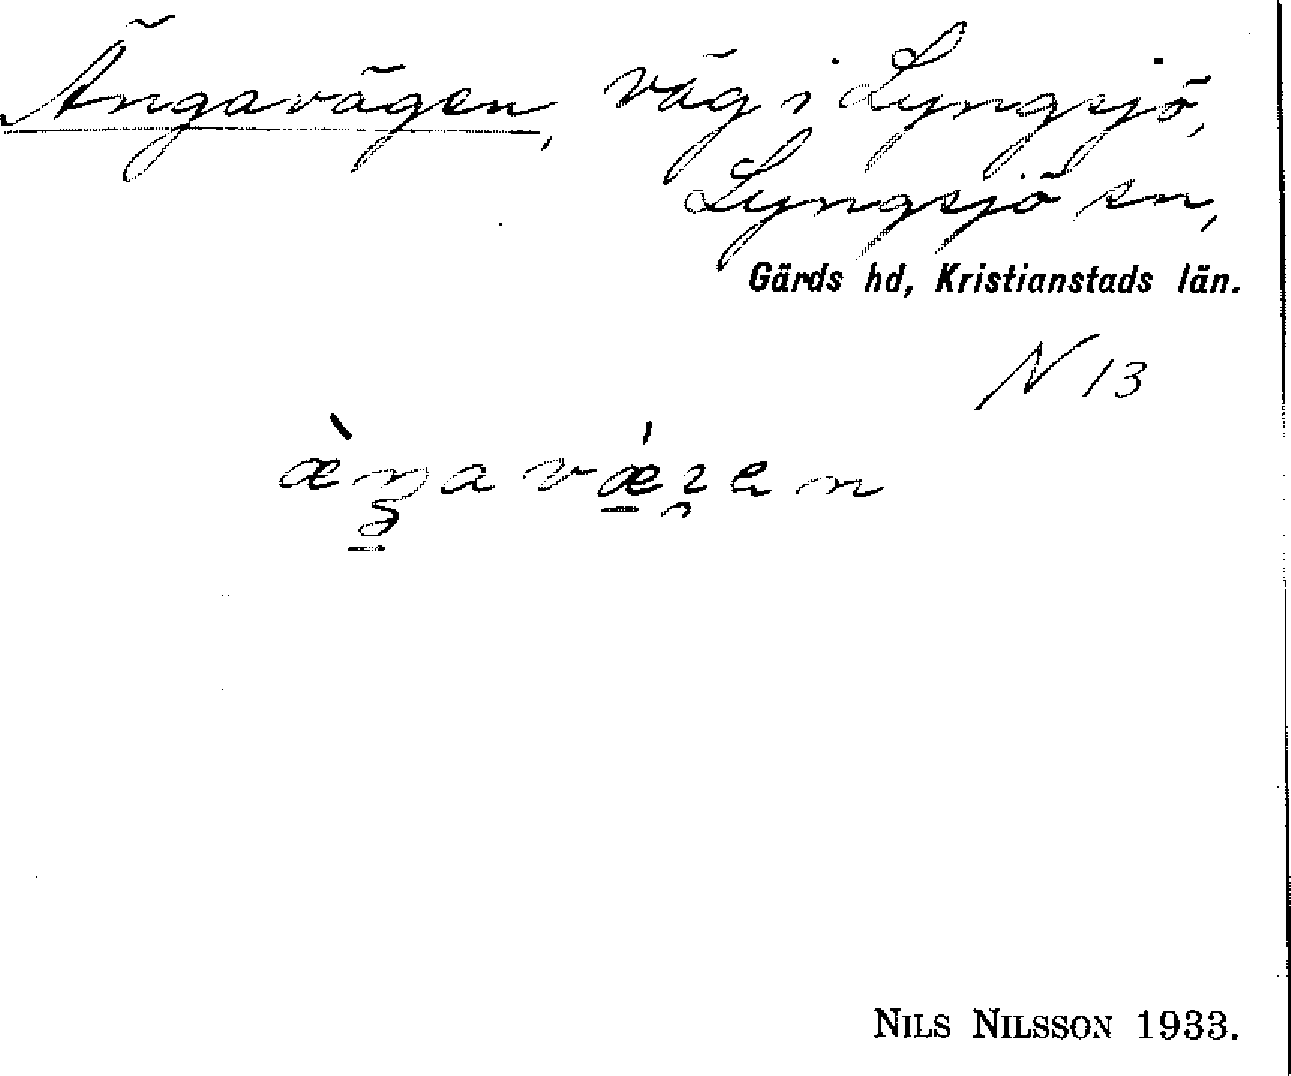 Ängavägen, väg i Lyngsjö,
Lyngsjö sn,
Gärds hd, Kristianstads län.
N 13
æ̀ŋavǽɪ̯en
NILS NILSSON 1933.